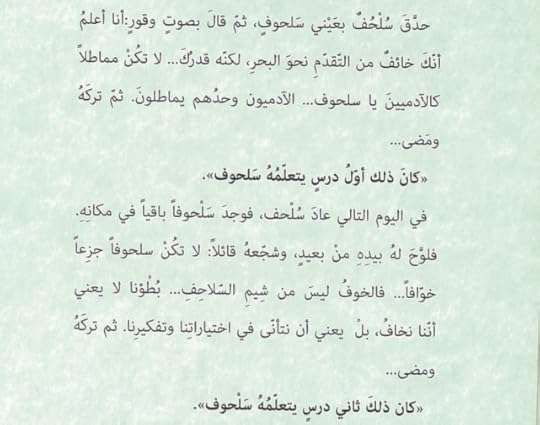 حدَّقَ سُلْحُفٌ بعَيْني سَلحوفٍ، ثمّ قالَ بصوتٍ وقورٍ:أنا أعلمُ
أنّكَ خائفٌ من التّقدّمِ نحوَ البحرِ، لكنّه قدرُكَ... لا تكُنْ مماطلاً
كالآدميينَ يا سلحوف... الآدميون وحدُهم يماطلونَ. ثمّ تركَهُ
ومَضى...
«كانَ ذلك أوّلُ درسٍ يتعلّمُهُ سَلحوف».
في اليوم التالي عادَ سُلْحف، فوجدَ سَلْحوفاً باقياً في مكانِهِ.
فلوَّحَ لهُ بيدِهِ منْ بعيدٍ، وشجّعهُ قائلاً: لا تكُنْ سلحوفاً جزِعاً
خوّافاً... فالخوفُ ليسَ من شِيمِ السّلاحِفِ... بُطْؤنا لا يعني
أنّنا نخافُ، بلْ يعني أن نتأنّى في اختياراتِنا وتفكيرِنا. ثم تركَهُ
ومضى...
«كان ذلكَ ثاني درسٍ يتعلّمُهُ سَلْحوف».